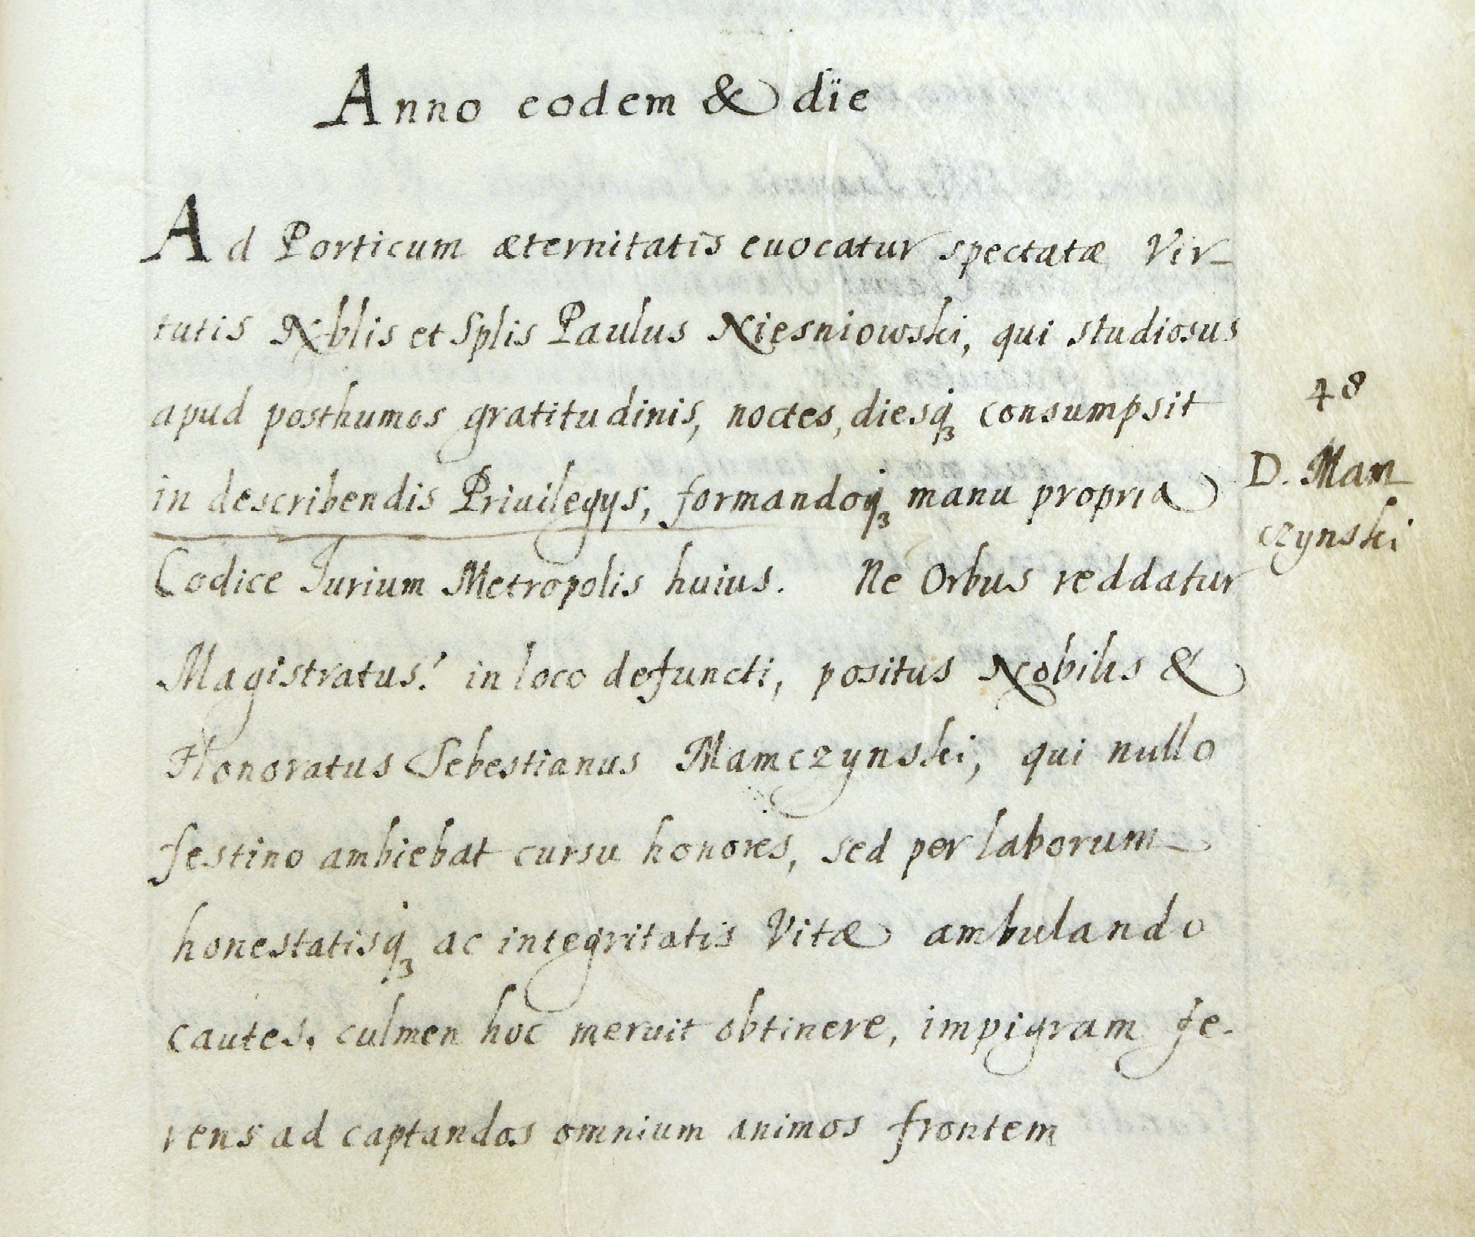 Anno eodem & dïe
Ad Porticum æternitatis euocatur spectatæ Vir-
tutis Nblis et Splis Paulus Niesniowski, qui studiosus
apud posthumos gratitudinis, noctes, diesqꝫ consumpsit
48
in describendis Priuilegys, formandoqꝫ manu propria
D. Mam
czynski
Codice Iurium Metropolis huius. Ne Orbus reddatur
Magistratus! in loco defuncti, positus Nobilis &
Honoratus Sebestianus Mamczynski, qui nullo
festino ambiebat cursu honores, sed per laborum
honestatisqꝫ ac integritatis Vitæ ambulando
cautes, culmen hoc meruit obtinere, impigram fe-
rens ad captandos omnium animos frontem